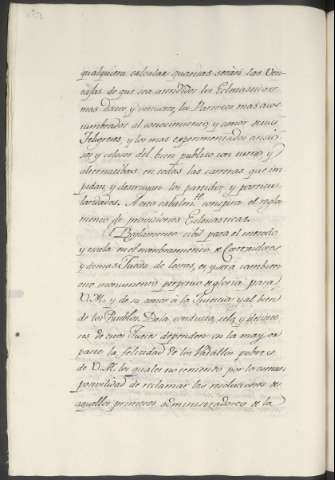 qualquiera calcular quantas serán las Ven-
tajas de que sea atendidos los Eclesiasticos
mas doctos, y virtuosos, los Parrocos mas acos-
tumbrados al conocimiento, y amor de sus
Feligreses, y los mas experimentados ancia-
nos y celosos del bien publico con turno, y
alternativa en todas las carreras que im-
pidan, y destruyan los partidos, y particu-
laridades. A esto cabalm.te conspira el regla-
mento de provisiones Eclesiasticas.
Reglamento util para el metodo
y escala en el nombramiento de Corregidores
y demas Jueces de letras, es y será tambien
otro monumento perpetuo de gloria para
V.M. y de su amor á la Justicia, y al bien
de los Pueblos. De la conducta, celo y desinte-
res de estos Jueces dependen en la mayor
parte la felicidad de los Vasallos pobres
de V.M. los quales no teniendo por lo comun
posibilidad de reclamar las resoluciones de
aquellos primeros administradores de la